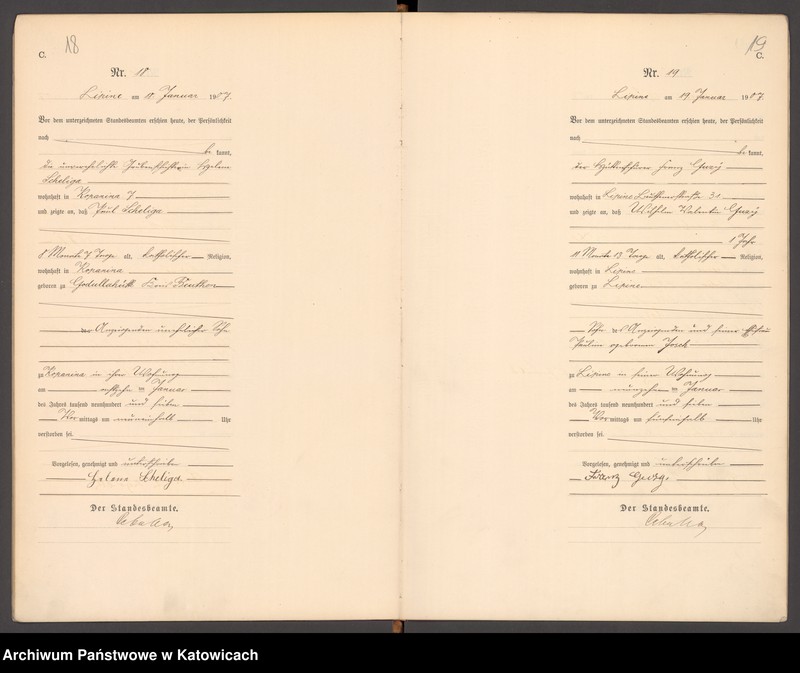 18
C.
Nr. 18
Lipine am 18 Januar 1907.
Vor dem unterzeichneten Standesbeamten erschien heute, der Persönlichkeit
nach
be kannt,
die unverehelichte Helene
Scheliga
wohnhaft in Kopanina 7
und zeigte an, daß Paul Scheliga
8 Monate 7 Tage alt, katholischer Religion,
wohnhaft in Kopanina
geboren zu Godullahütte Kreis Beuthen
der Anzeigenden unehelicher Sohn
zu Kopanina in ihrer Wohnung
am achtzehn ten Januar
des Jahres tausend neunhundert und sieben
Vor mittags um neuneinhalb Uhr
verstorben sei.
Vorgelesen, genehmigt und unterschrieben
Helene Scheliga
Der Standesbeamte.
19
C.
Nr. 19
Lipine am 19 Januar 1907.
Vor dem unterzeichneten Standesbeamten erschien heute, der Persönlichkeit
nach
be kannt,
der Franz
wohnhaft in Lipine 31
und zeigte an, daß Wilhelm Valentin
1 Jahr
11 Monate 13 Tage alt, katholischer Religion,
wohnhaft in Lipine
geboren zu Lipine
Sohn des Anzeigenden und seiner Ehefrau
Pauline geborenen Josch
zu Lipine in seiner Wohnung
am neunzehn ten Januar
des Jahres tausend neunhundert und sieben
Vor mittags um fünfeinhalb Uhr
verstorben sei.
Vorgelesen, genehmigt und unterschrieben
Franz
Der Standesbeamte.
Archiwum Państwowe w Katowicach